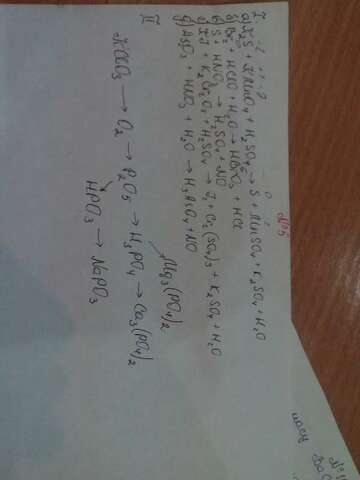 №5
I.
а) K2S + KMnO4 + H2SO4 → S + MnSO4 + K2SO4 + H2O
б) Br2 + HClO + H2O → HBrO3 + HCl
в) S + HNO3 → H2SO4 + NO
г) KJ + K2Cr2O7 + H2SO4 → J2 + Cr2(SO4)3 + K2SO4 + H2O
д) AsO3 + HNO3 + H2O → H3AsO4 + NO
II
Mg3(PO4)2
KClO3 → O2 → P2O5 → H3PO4 → Ca3(PO4)2
HPO3 → NaPO3